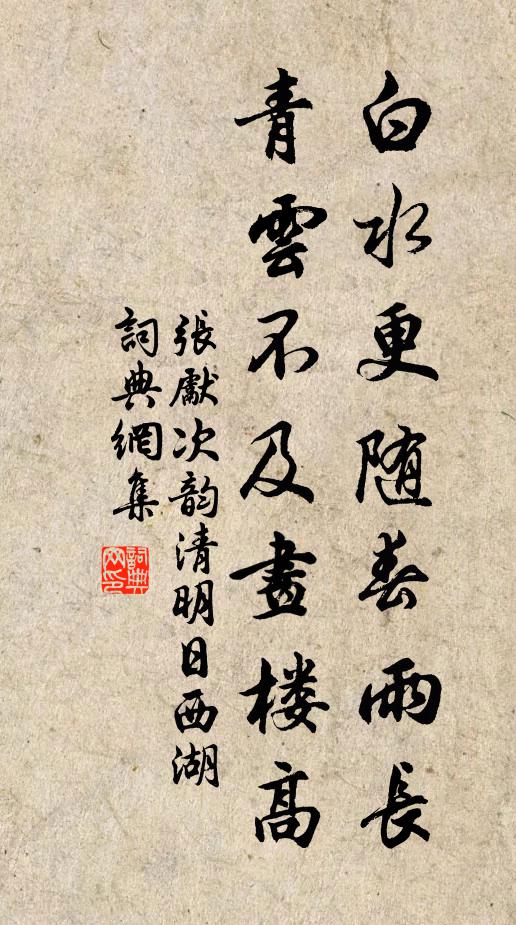 白水更随春雨長
青雲不及畫楼高
張獻次韵清明日西湖
詞典網集
詞典网印